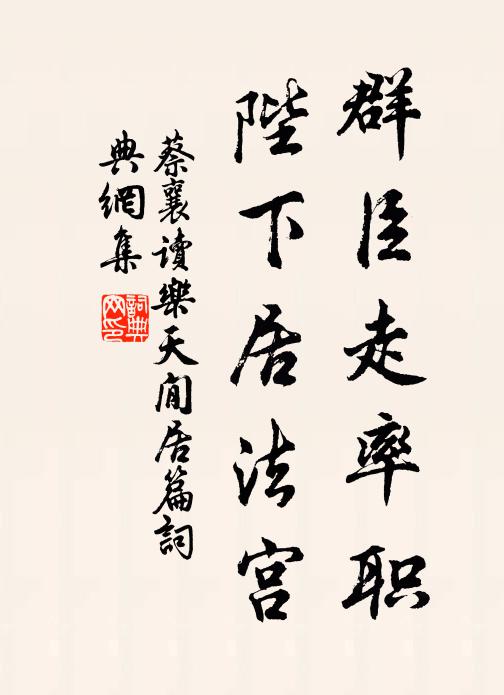 群臣走率职
陛下居法宫
蔡襄讀樂天閒居篇詞
典網集
詞典
网印